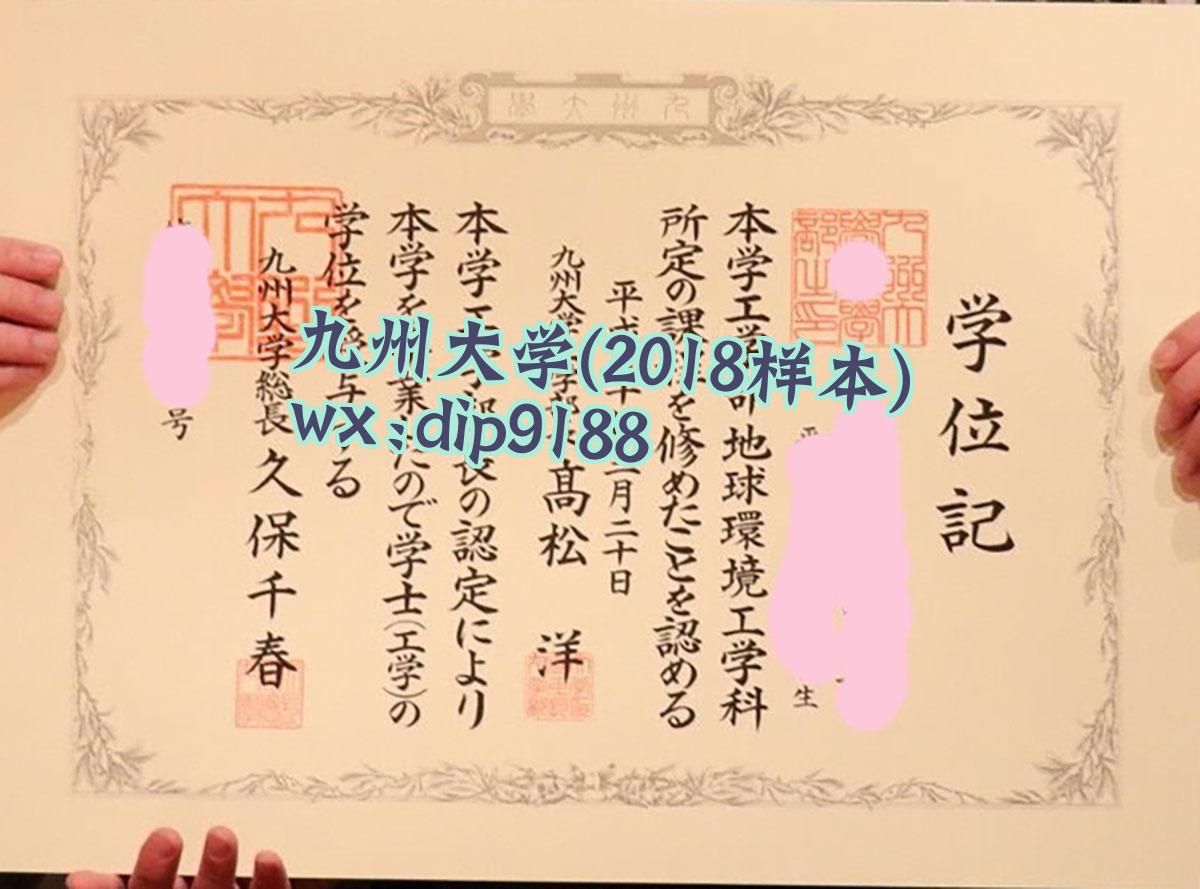 九州大学
学位記
生
本学工学 地球環境工学科
所定の課 を修めたことを認める
平成 月二十日
九州大学 学部 髙松 洋
本学工 の認定により
本学を 業 たので学士(工学)の
学位を 与 る
九州大学総長 久保千春
号
九州大学(2018样本)
wx:dip9188